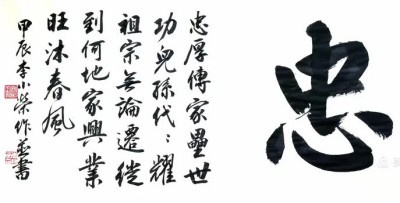 忠
忠厚傳家壘世
功兒孫代々耀
祖宗無論遷徙
到何地家興業
旺沐春風
甲辰李小榮作並書